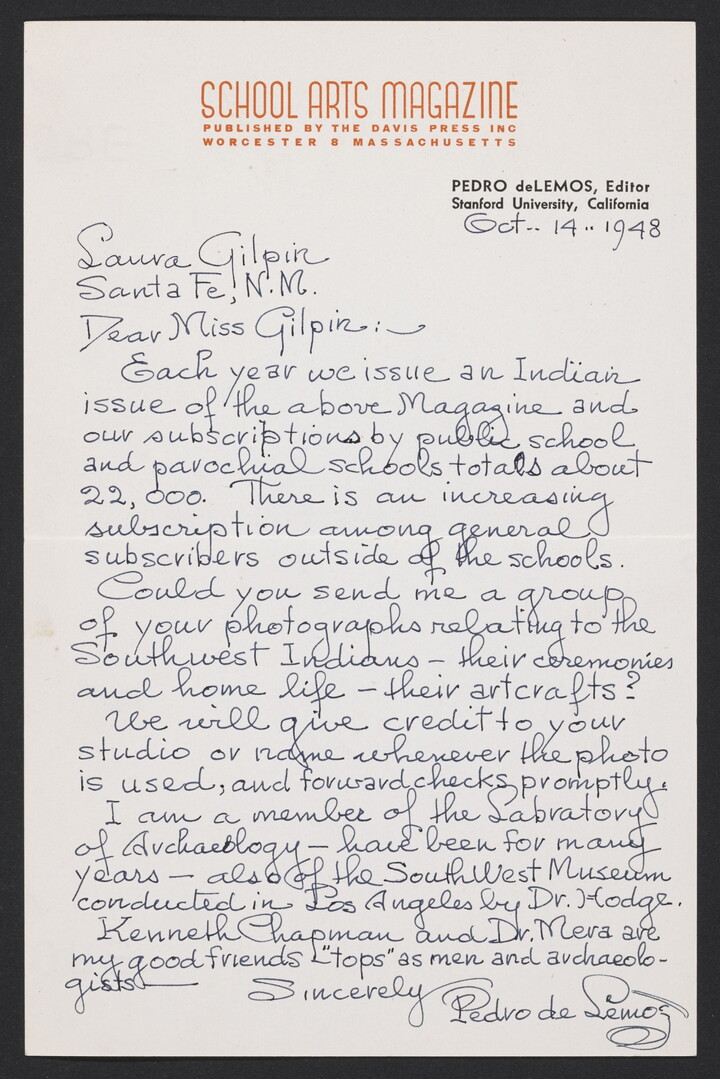 SCHOOL ARTS MAGAZINE
PUBLISHED BY THE DAVIS PRESS INC
WORCESTER 8 MASSACHUSETTS
PEDRO deLEMOS, Editor
Stanford University, California
Oct-- 14 .. 1948
Laura Gilpin
Santa Fe, N.M.
Dear Miss Gilpin:-
Each year we issue an Indian
issue of the above Magazine and
our subscriptions by public school
and parochial schools totals about
22,000. There is an increasing
subscription among general
subscribers outside of the schools.
Could you send me a group
of your photographs relating to the
Southwest Indians - their ceremonies
and home life - their artcrafts?
We will give credit to your
studio or name whenever the photo
is used, and forward checks promptly.
I am a member of the Labratory
of Archaeology - have been for many
years - also of the SouthWest Museum
conducted in Los Angeles by Dr. Hodge.
Kenneth Chapman and Dr. Mera are
my good friends - "tops" as men and archaeolo-
gists - Sincerely Pedro de Lemos